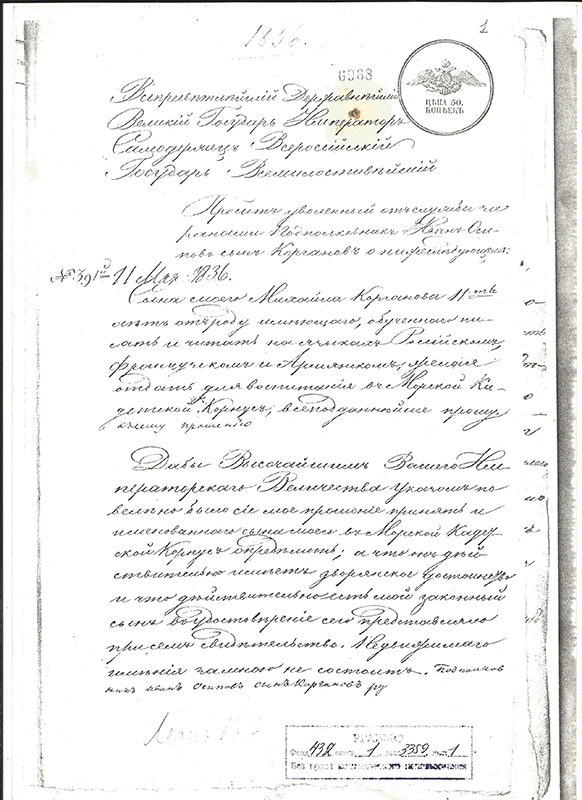 1
1836.
6968
ЦѢНА 50.
КОПѢЕКЪ
Всепресвѣтлѣйшій Державнѣйшій
Великій Государь Императоръ
Самодержецъ Всеросійскій
Государь Всемилостивѣйшій
Проситъ уволенный отъ службы за
ранами Подполковникъ Иванъ Оси-
повъ сынъ Коргановъ о нижеслѣдующемъ:
11 Мая 1836.
Сына моего Михайла Корганова 11ть
лѣтъ отъ роду имеющаго, обученнаго пи-
сать и читать на языкахъ Російскомъ,
Французскомъ и Армянскомъ, желая
отдать для воспитанія въ Морской Ка-
детской Корпусъ, всеподданнѣйше прошу
къ сему прошенію
Дабы Высочайшимъ Вашего Им-
ператорскаго Величества указомъ по-
велѣно было сіе мое прошеніе принять и
именованнаго сына моего въ Морской Кадет-
ской Корпусъ опредѣлить; а что онъ дѣй-
ствительно имѣетъ дворянское достоинство
и что дѣйствительно есть мой законный
сынъ въ удостовѣреніе сего представляю
при семъ свидѣтельство. Недвижимаго
имѣнія за мною не состоитъ. Подполков
никъ иванъ Осиповъ сынъ Коргановъ ру
Фонд 432 опись 1 дело 3359 лист 1
Без права коммерческого использования